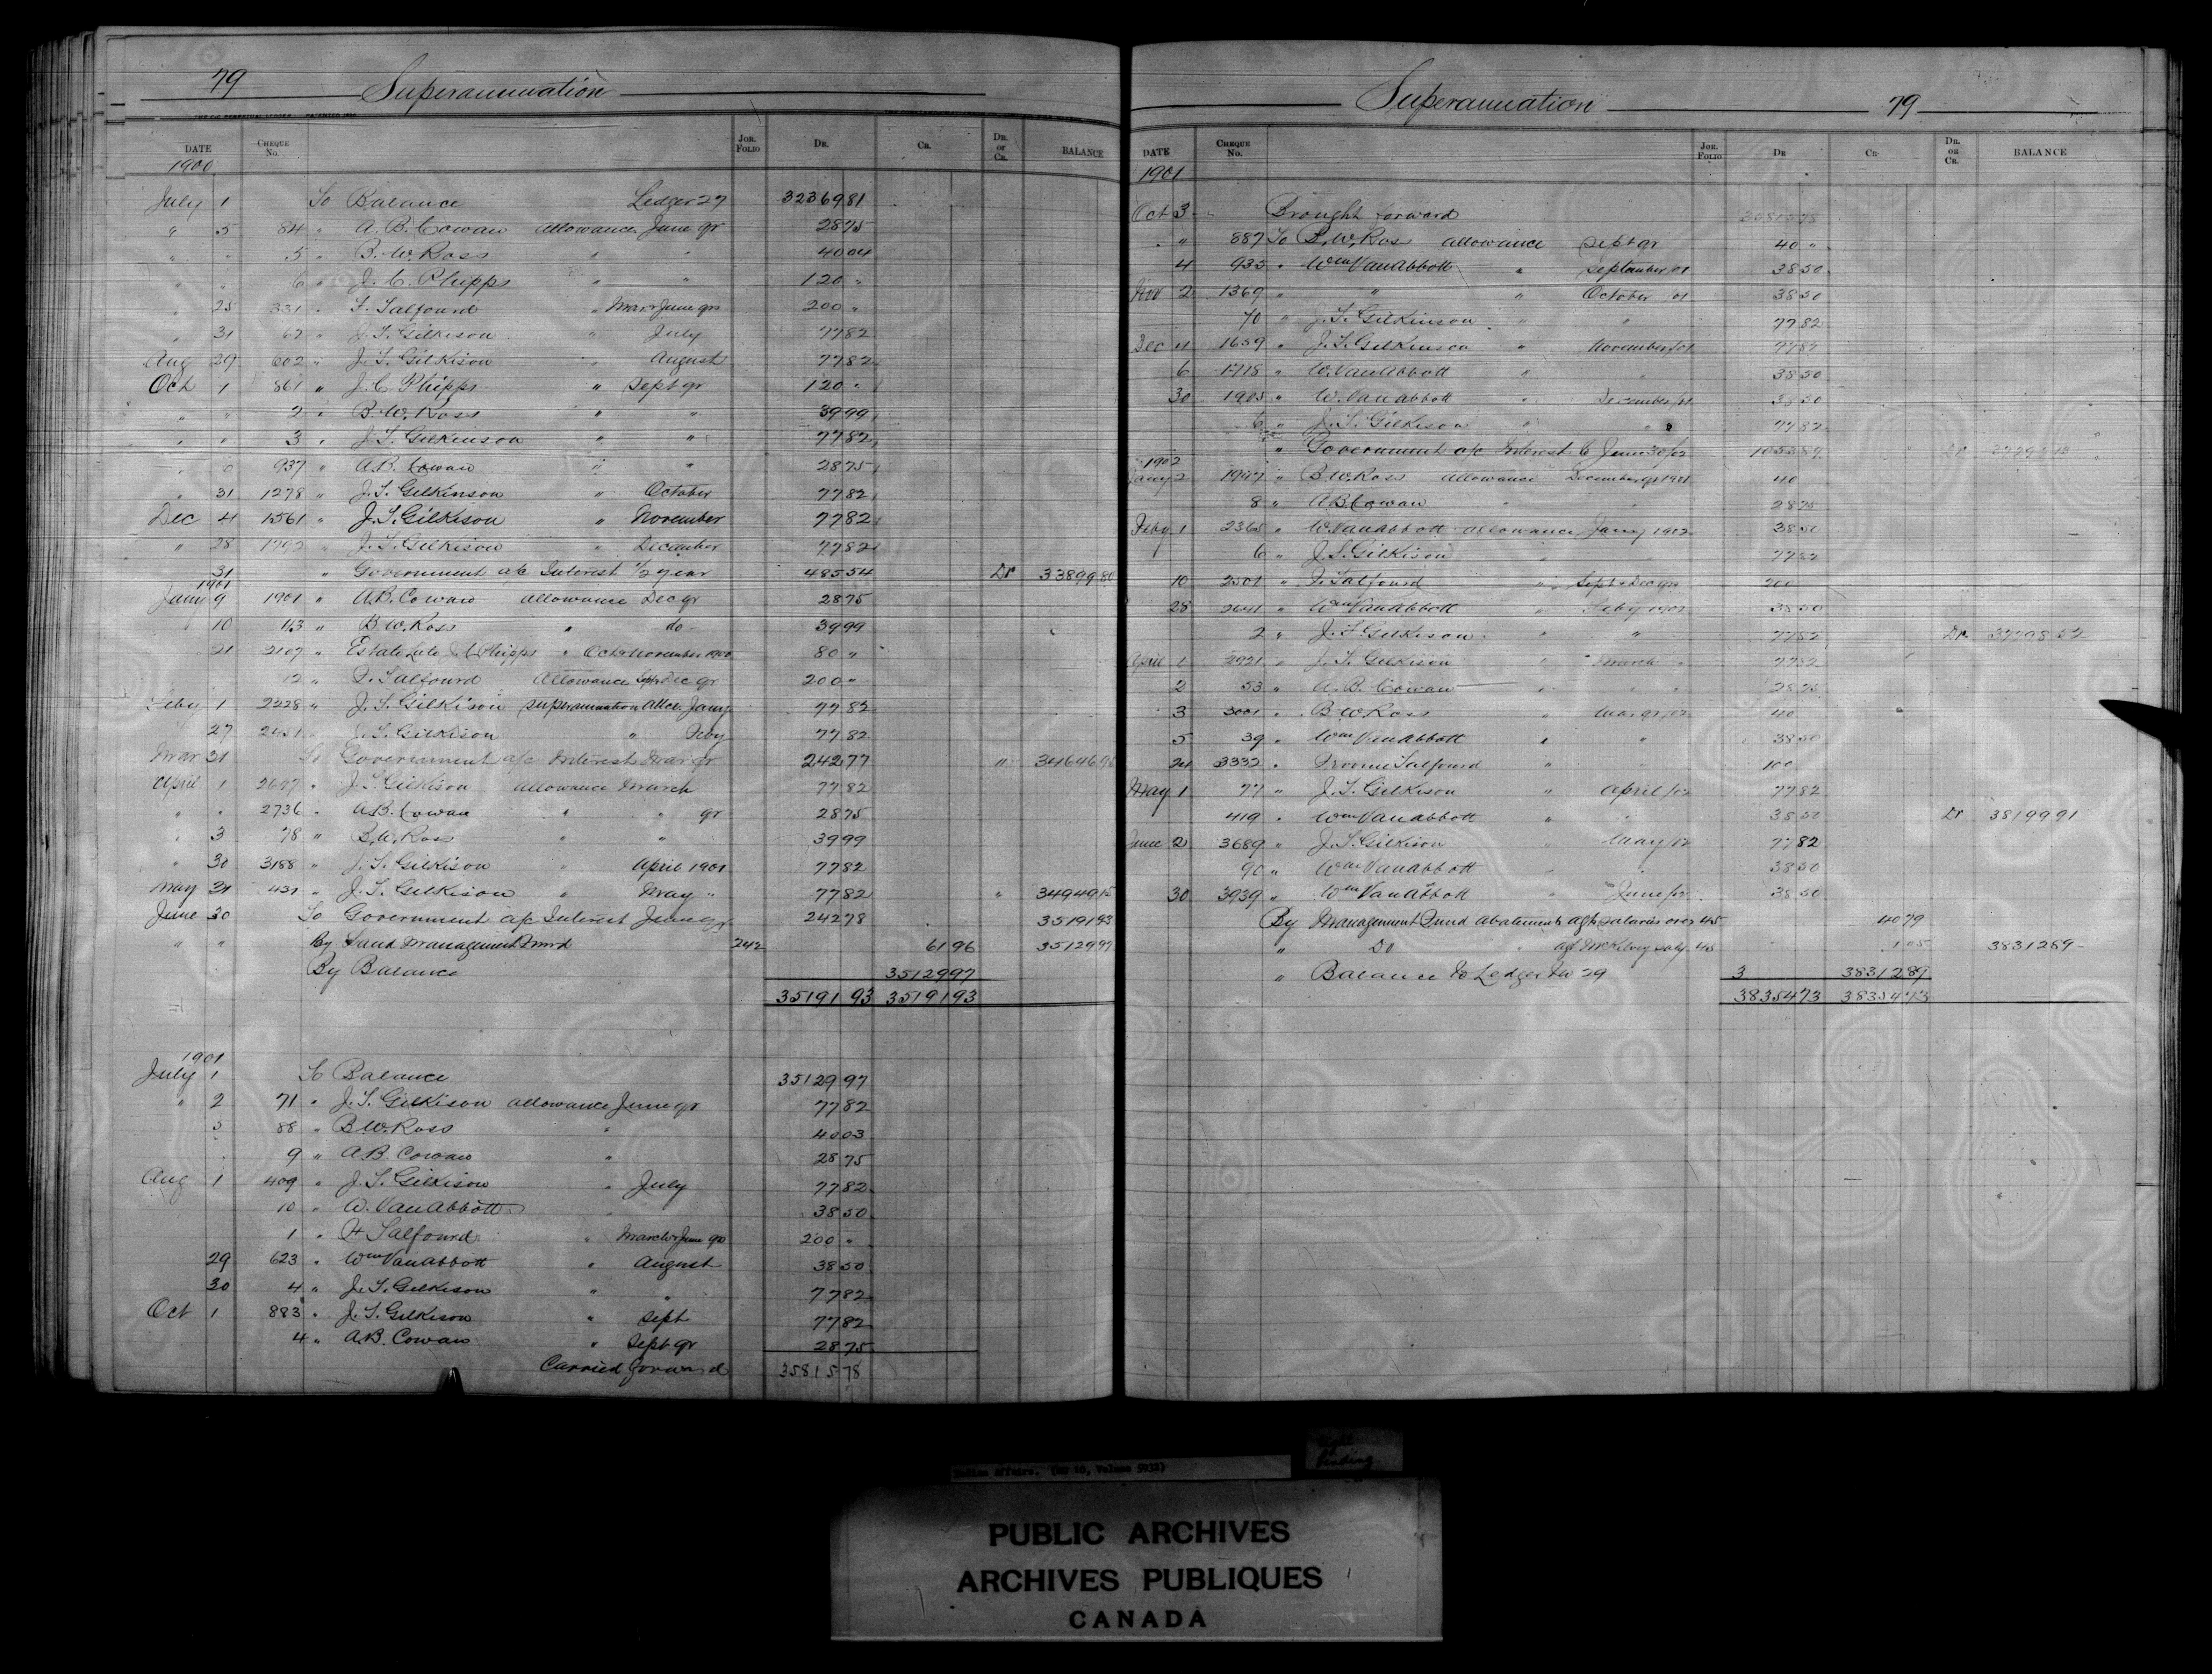 79 Superannuation
DATE CHEQUE No. JOR. FOLIO DR. CR. DR. or CR. BALANCE
1900
July 1 To Balance Ledger 27 32369 81
" 5 84 " A. B. Cowan allowance June qr 28 75
" " 5 " B. W. Ross " " 40 04
" " 6 " J. C. Phipps " " 120 "
" 25 331 " F. Talfourd " Mar & June qrs 200 "
" 31 62 " J. T. Gilkison " July 77 82
Aug 29 602 " J. T. Gilkison " August 77 82
Oct 1 861 " J. C. Phipps " Sept qr 120 "
" " 2 " B. W. Ross " " 39 99
" " 3 " J. T. Gilkinson " " 77 82
" 937 " A. B. Cowan " " 28 75
" 31 1278 " J. T. Gilkinson " October 77 82
Dec 4 1561 " J. T. Gilkison " November 77 82
" 28 1792 " J. T. Gilkison " December 77 82
31 " Government a/c Interest 1/2 year 485 54 Dr 33899 80
1901
Jany 9 1901 " A. B. Cowan allowance Dec qr 28 75
10 13 " B. W. Ross " do 39 99
21 2107 " Estate Late J. C. Phipps " Oct & November 1900 80 "
12 " F. Talfourd Allowance Sept & Dec qr 200 "
Feby 1 2228 " J. T. Gilkison superannuation allce. Jany 77 82
27 2451 " J. T. Gilkison " Feby 77 82
Mar 31 To Government a/c Interest Mar qr 242 77 " 34646 95
April 1 2697 " J. T. Gilkison allowance March 77 82
" " 2736 " A. B. Cowan " " qr 28 75
" 3 78 " B. W. Ross " " 39 99
" 30 3188 " J. T. Gilkison " April 1901 77 82
May 31 431 " J. T. Gilkison " May " 77 82 " 34949 15
June 30 To Government a/c Interest June qr 242 78 35191 93
" " By Land Management Fund 242 61 96 35129 97
By Balance 35129 97
35191 93 35191 93
1901
July 1 To Balance 35129 97
" 2 71 " J. T. Gilkison allowance June qr 77 82
3 88 " B. W. Ross " 40 03
9 " A. B. Cowan " 28 75
Aug 1 409 " J. T. Gilkison " July 77 82
10 " W. Van Abbott " 38 50
1 " F Talfourd " March & June qrs 200 "
29 623 " Wm Van Abbott " August 38 50
30 4 " J. T. Gilkison " " 77 82
Oct 1 883 " J. T. Gilkison " Sept 77 82
4 " A. B. Cowan " Sept qr 28 75
Carried forward 35815 78
Superannuation 79
DATE CHEQUE No. JOR. FOLIO DR CR. DR. OR CR. BALANCE
1901
Oct 3 Brought forward 35815 78
" 887 To B. W. Ross allowance Sept qr 40 "
4 935 " Wm Van Abbott " September/01 38 50
Nov 2 1369 " " " October /01 38 50
70 " J. T. Gilkinson " " 77 82
Dec 4 1659 " J. T. Gilkinson " November/01 77 82
6 1718 " W. Van Abbott " " 38 50
30 1905 " W. Van Abbott " December/01 38 50
6 " J. T. Gilkison " " 77 82
" Government a/c Interest to June 30/02 1053 89 Dr
1902
Jany 2 1947 " B. W. Ross allowance December qr 1901 40
8 " A B Cowan " " 28 75
Feby 1 2365 " W. Van Abbott allowance Jany 1902 38 50
6 " J. T. Gilkison " " 77 82
10 2501 " F. Talfourd " Sept & Dec qrs 200
28 2641 " Wm Van Abbott " Feby 1902 38 50
2 " J. T. Gilkison " " 77 82 Dr 37798 52
April 1 2921 " J. T. Gilkison " March " 77 82
2 53 " A. B. Cowan " " 28 75
3 3001 " B. W. Ross " Mar qr/02 40
5 39 " Wm Van Abbott " " 38 50
24 3332 " Froome Talfourd " " 100
May 1 77 " J. T. Gilkison " April/02 77 82
419 " Wm Van Abbott " " 38 50 Dr 38199 91
June 2 3689 " J. T. Gilkison " May/02 77 82
90 " Wm Van Abbott " " 38 50
30 3939 " Wm Van Abbott " June/02 38 50
By Management Fund abatements a/c salaries over 45 40 79
" Do " a/c McKelvey saly. 45 1 05 38312 89
" Balance to Ledger No 29 3 38312 89
38354 73 38354 73
Indian Affairs. (RG 10, Volume 5932)
tight binding
PUBLIC ARCHIVES
ARCHIVES PUBLIQUES
CANADA